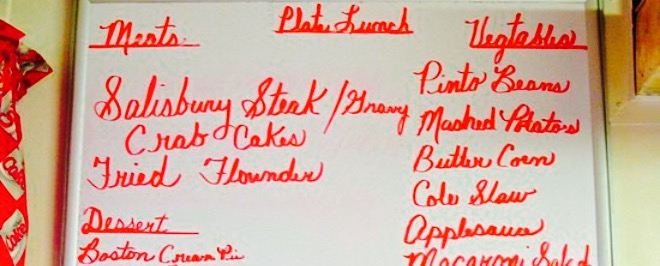 Plate Lunch
Meats
Salisbury Steak / Gravy
Crab Cakes
Fried Flounder
Dessert
Boston Cream Pie
Vegtables
Pinto Beans
Mashed Potatos
Butter Corn
Cole Slaw
Applesauce
Macaroni Salad